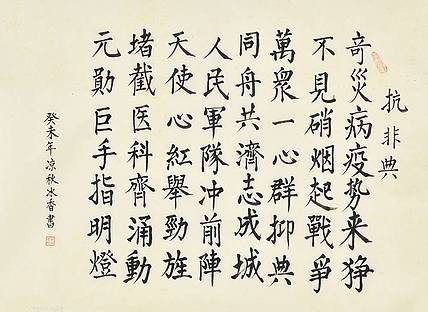 抗非典
奇災病疫势来猙
不見硝烟起戰爭
萬衆一心群抑典
同舟共濟志成城
人民軍隊冲前陣
天使心紅舉勁旌
堵截医科齊涌動
元勛巨手指明燈
癸未年凉秋冰香書